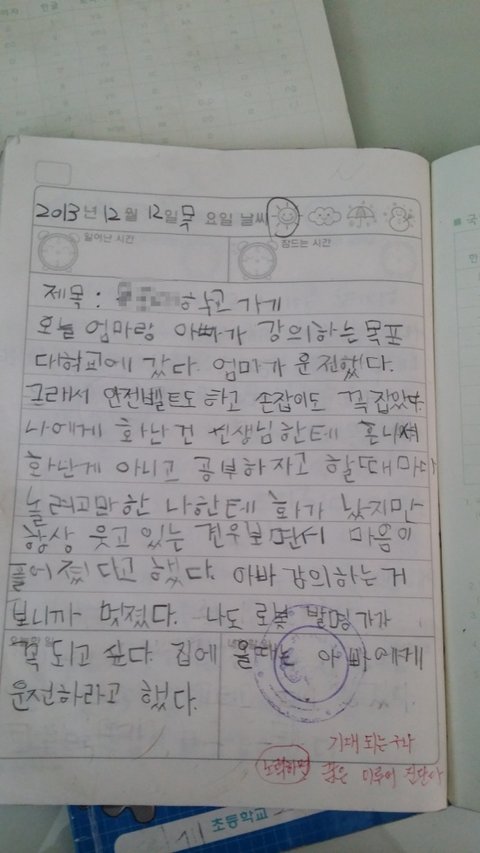 2013년 12월 12일 목요일 날씨
일어난 시간 잠드는 시간
제목 : 학교 가게
오늘 엄마랑 아빠가 강의하는 목포
대학교에 갔다. 엄마가 운전했다.
그래서 안전벨트도 하고 손잡이도 꼭 잡았다.
나에게 화난건 선생님한테 혼나서
화난게 아니고 공부하자고 할때마다
놀려고만한 나한테 화가 났지만
항상 웃고 있는 견우보면서 마음이
풀어졌다고 했다. 아빠 강의하는거
보니까 멋졌다. 나도 로봇 발명가가
꼭 되고 싶다. 집에 올때는 아빠에게
오늘한 일
운전하라고 했다.
기대 되는구나
노력하면 꿈은 이루어 진단다
초등학교